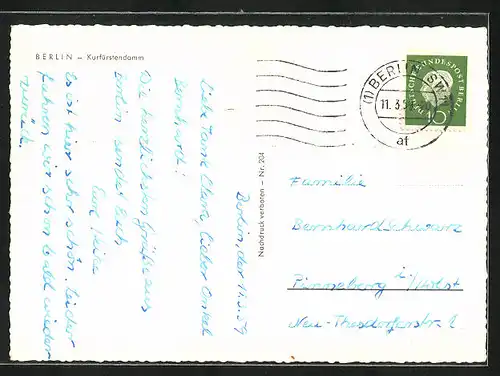 BERLIN – Kurfürstendamm
Berlin, der 11.3.59
Liebe Tante Clara, lieber Onkel
Bernhard!
Die herzlichsten Grüße aus
Berlin sendet Euch
Eure
Es ist hier sehr schön. Leider
fahren wir schon bald wieder
zurück.
Nachdruck verboten – Nr. 204
(1) BERLIN SW
11. 3.59
af
DEUTSCHE BUNDESPOST BERLIN
10
Familie
Bernhard Schwarz
Pinneberg i/Holst
Neu-